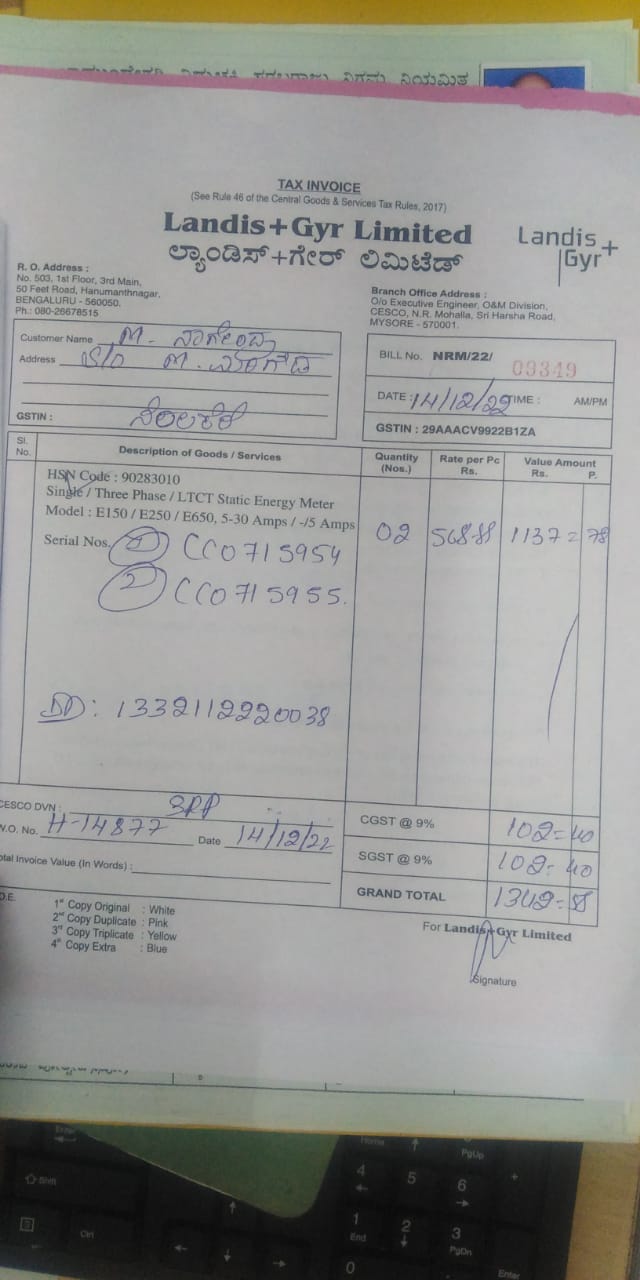 TAX INVOICE
(See Rule 46 of the Central Goods & Services Tax Rules, 2017)
Landis+Gyr Limited
ಲ್ಯಾಂಡಿಸ್+ಗೇರ್ ಲಿಮಿಟೆಡ್
Landis+
Gyr
R. O. Address :
No. 503, 1st Floor, 3rd Main,
50 Feet Road, Hanumanthnagar,
BENGALURU - 560050.
Ph.: 080-26678515
Branch Office Address :
O/o Executive Engineer, O&M Division,
CESCO, N.R. Mohalla, Sri Harsha Road,
MYSORE - 570001.
Customer Name M. ನಾಗೇಂದ್ರ
Address S/o M.
GSTIN :
BILL No. NRM/22/ 09349
DATE : 14/12/22 TIME : AM/PM
GSTIN : 29AAACV9922B1ZA
Sl. No. Description of Goods / Services Quantity (Nos.) Rate per Pc Rs. Value Amount Rs. P.
HSN Code : 90283010
Single / Three Phase / LTCT Static Energy Meter
Model : E150 / E250 / E650, 5-30 Amps / -/5 Amps 02 568-88 1137=78
Serial Nos. 1 CC0715954
2 CC0715955.
DD : 1332112220038
CESCO DVN :
W.O. No. H-14877 Date 14/12/22
Total Invoice Value (In Words) :
CGST @ 9% 102=40
SGST @ 9% 102=40
GRAND TOTAL 1342=58
O.E.
1st Copy Original : White
2nd Copy Duplicate : Pink
3rd Copy Triplicate : Yellow
4th Copy Extra : Blue
For Landis+Gyr Limited
Signature
Enter
Home
PgUp
Shift
4
5
6
+
Ctrl
1
End
2
3
PgDn
0
Enter